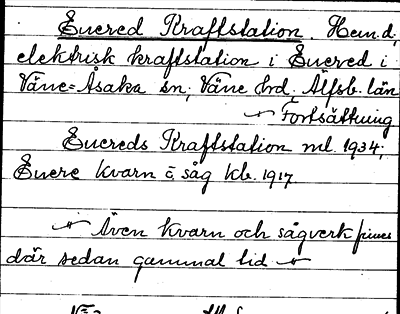 Enered Kraftstation. Hemd.
elektrisk kraftstation i Enered i
Väne=Åsaka sn, Väne hd. Älfsb. län
Fortsättning
Enereds Kraftstation ml. 1934;
Enere kvarn o såg kb. 1917
Även kvarn och sågverk finnes
där sedan gammal tid